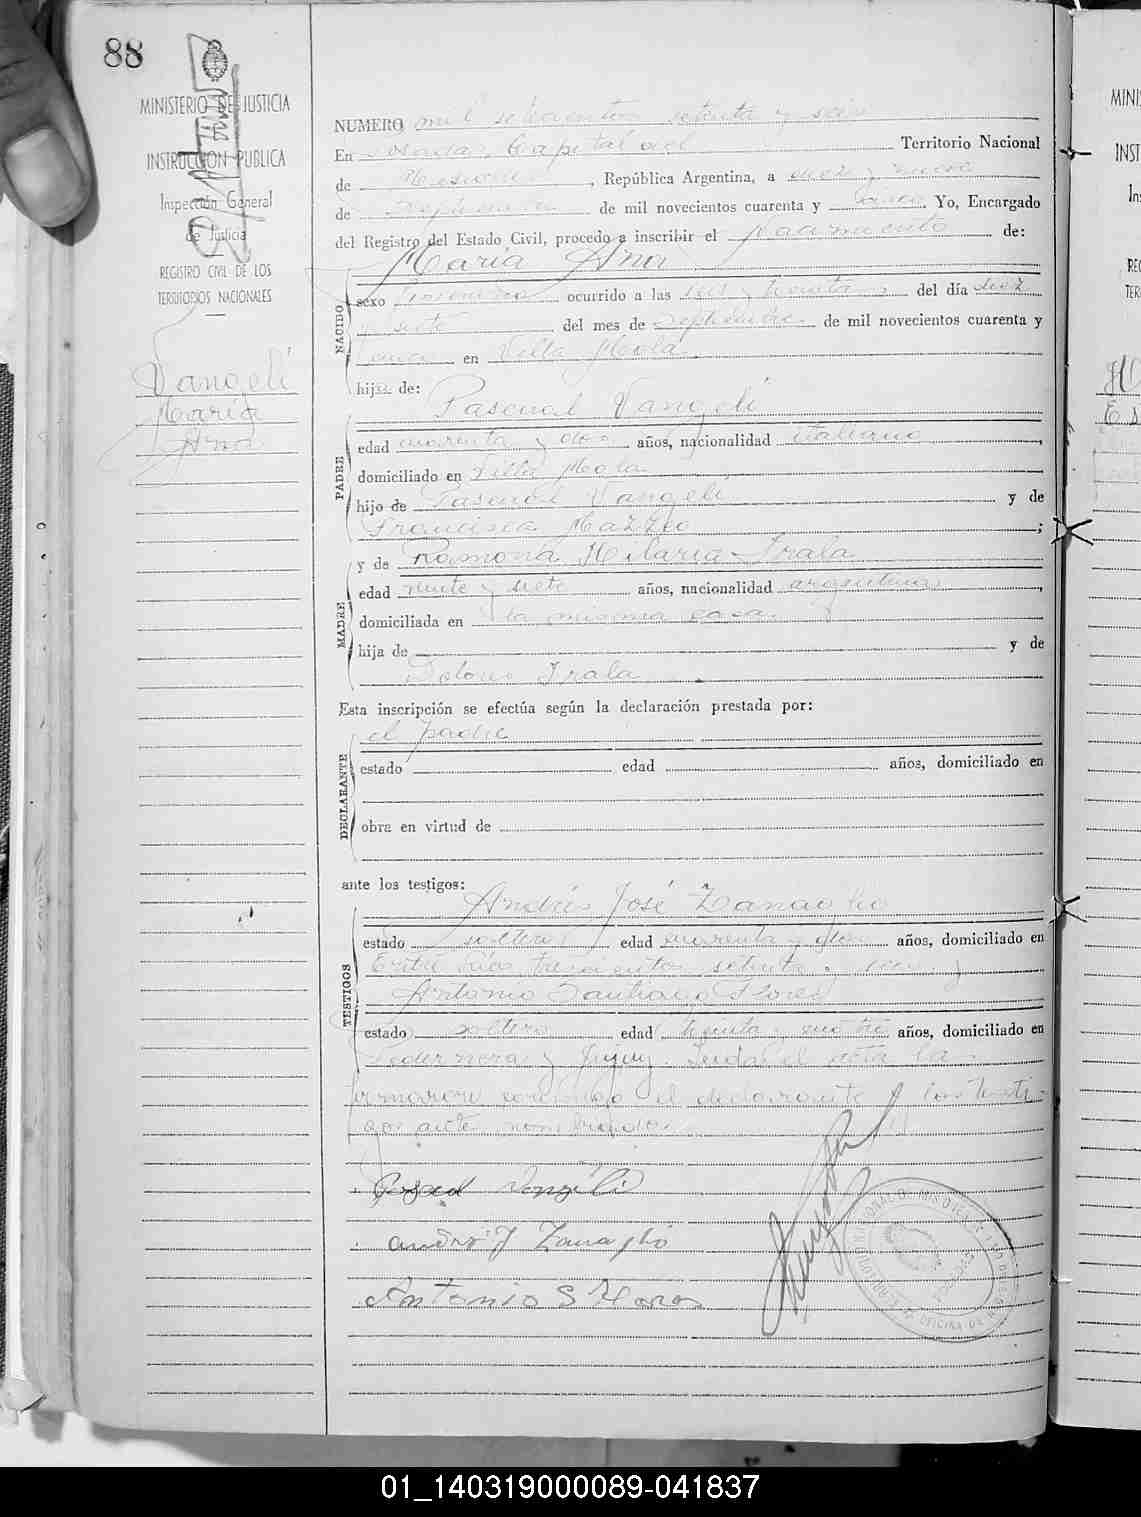 88
MINISTERIO DE JUSTICIA
INSTRUCCION PUBLICA
Inspección General
de Justicia
REGISTRO CIVIL DE LOS
TERRITORIOS NACIONALES
Vangeli
María
Ana
NUMERO mil setecientos setenta y seis
En Posadas, Capital del Territorio Nacional
de Misiones, República Argentina, a diez y nueve
de Septiembre de mil novecientos cuarenta y Yo, Encargado
del Registro del Estado Civil, procedo a inscribir el nacimiento de:
María Ana
NACIDO
sexo femenino ocurrido a las seis y treinta del día diez
y siete del mes de Septiembre de mil novecientos cuarenta y
en Villa Mola
hija de:
Pascual Vangeli
PADRE
edad cuarenta y dos años, nacionalidad italiano,
domiciliado en Villa Mola
hijo de Pascual Vangeli y de
Francisca Mazzeo;
y de Ramona Hilaria Irala
MADRE
edad veinte y siete años, nacionalidad argentina,
domiciliada en la misma casa
hija de y de
Dolores Irala
Esta inscripción se efectúa según la declaración prestada por:
el padre
DECLARANTE
estado edad años, domiciliado en
obra en virtud de
ante los testigos:
Andrés José Zanaglio
TESTIGOS
estado soltero edad cuarenta y años, domiciliado en
Entre Ríos trescientos setenta y
Antonio Santiago Flores
estado soltero edad treinta y años, domiciliado en
y Jujuy. Leída el acta la
firmaron conmigo el declarante y los testi-
gos antes nombrados.
Pascual Vangeli
Andrés J Zanaglio
Antonio S Flores
01_140319000089-041837